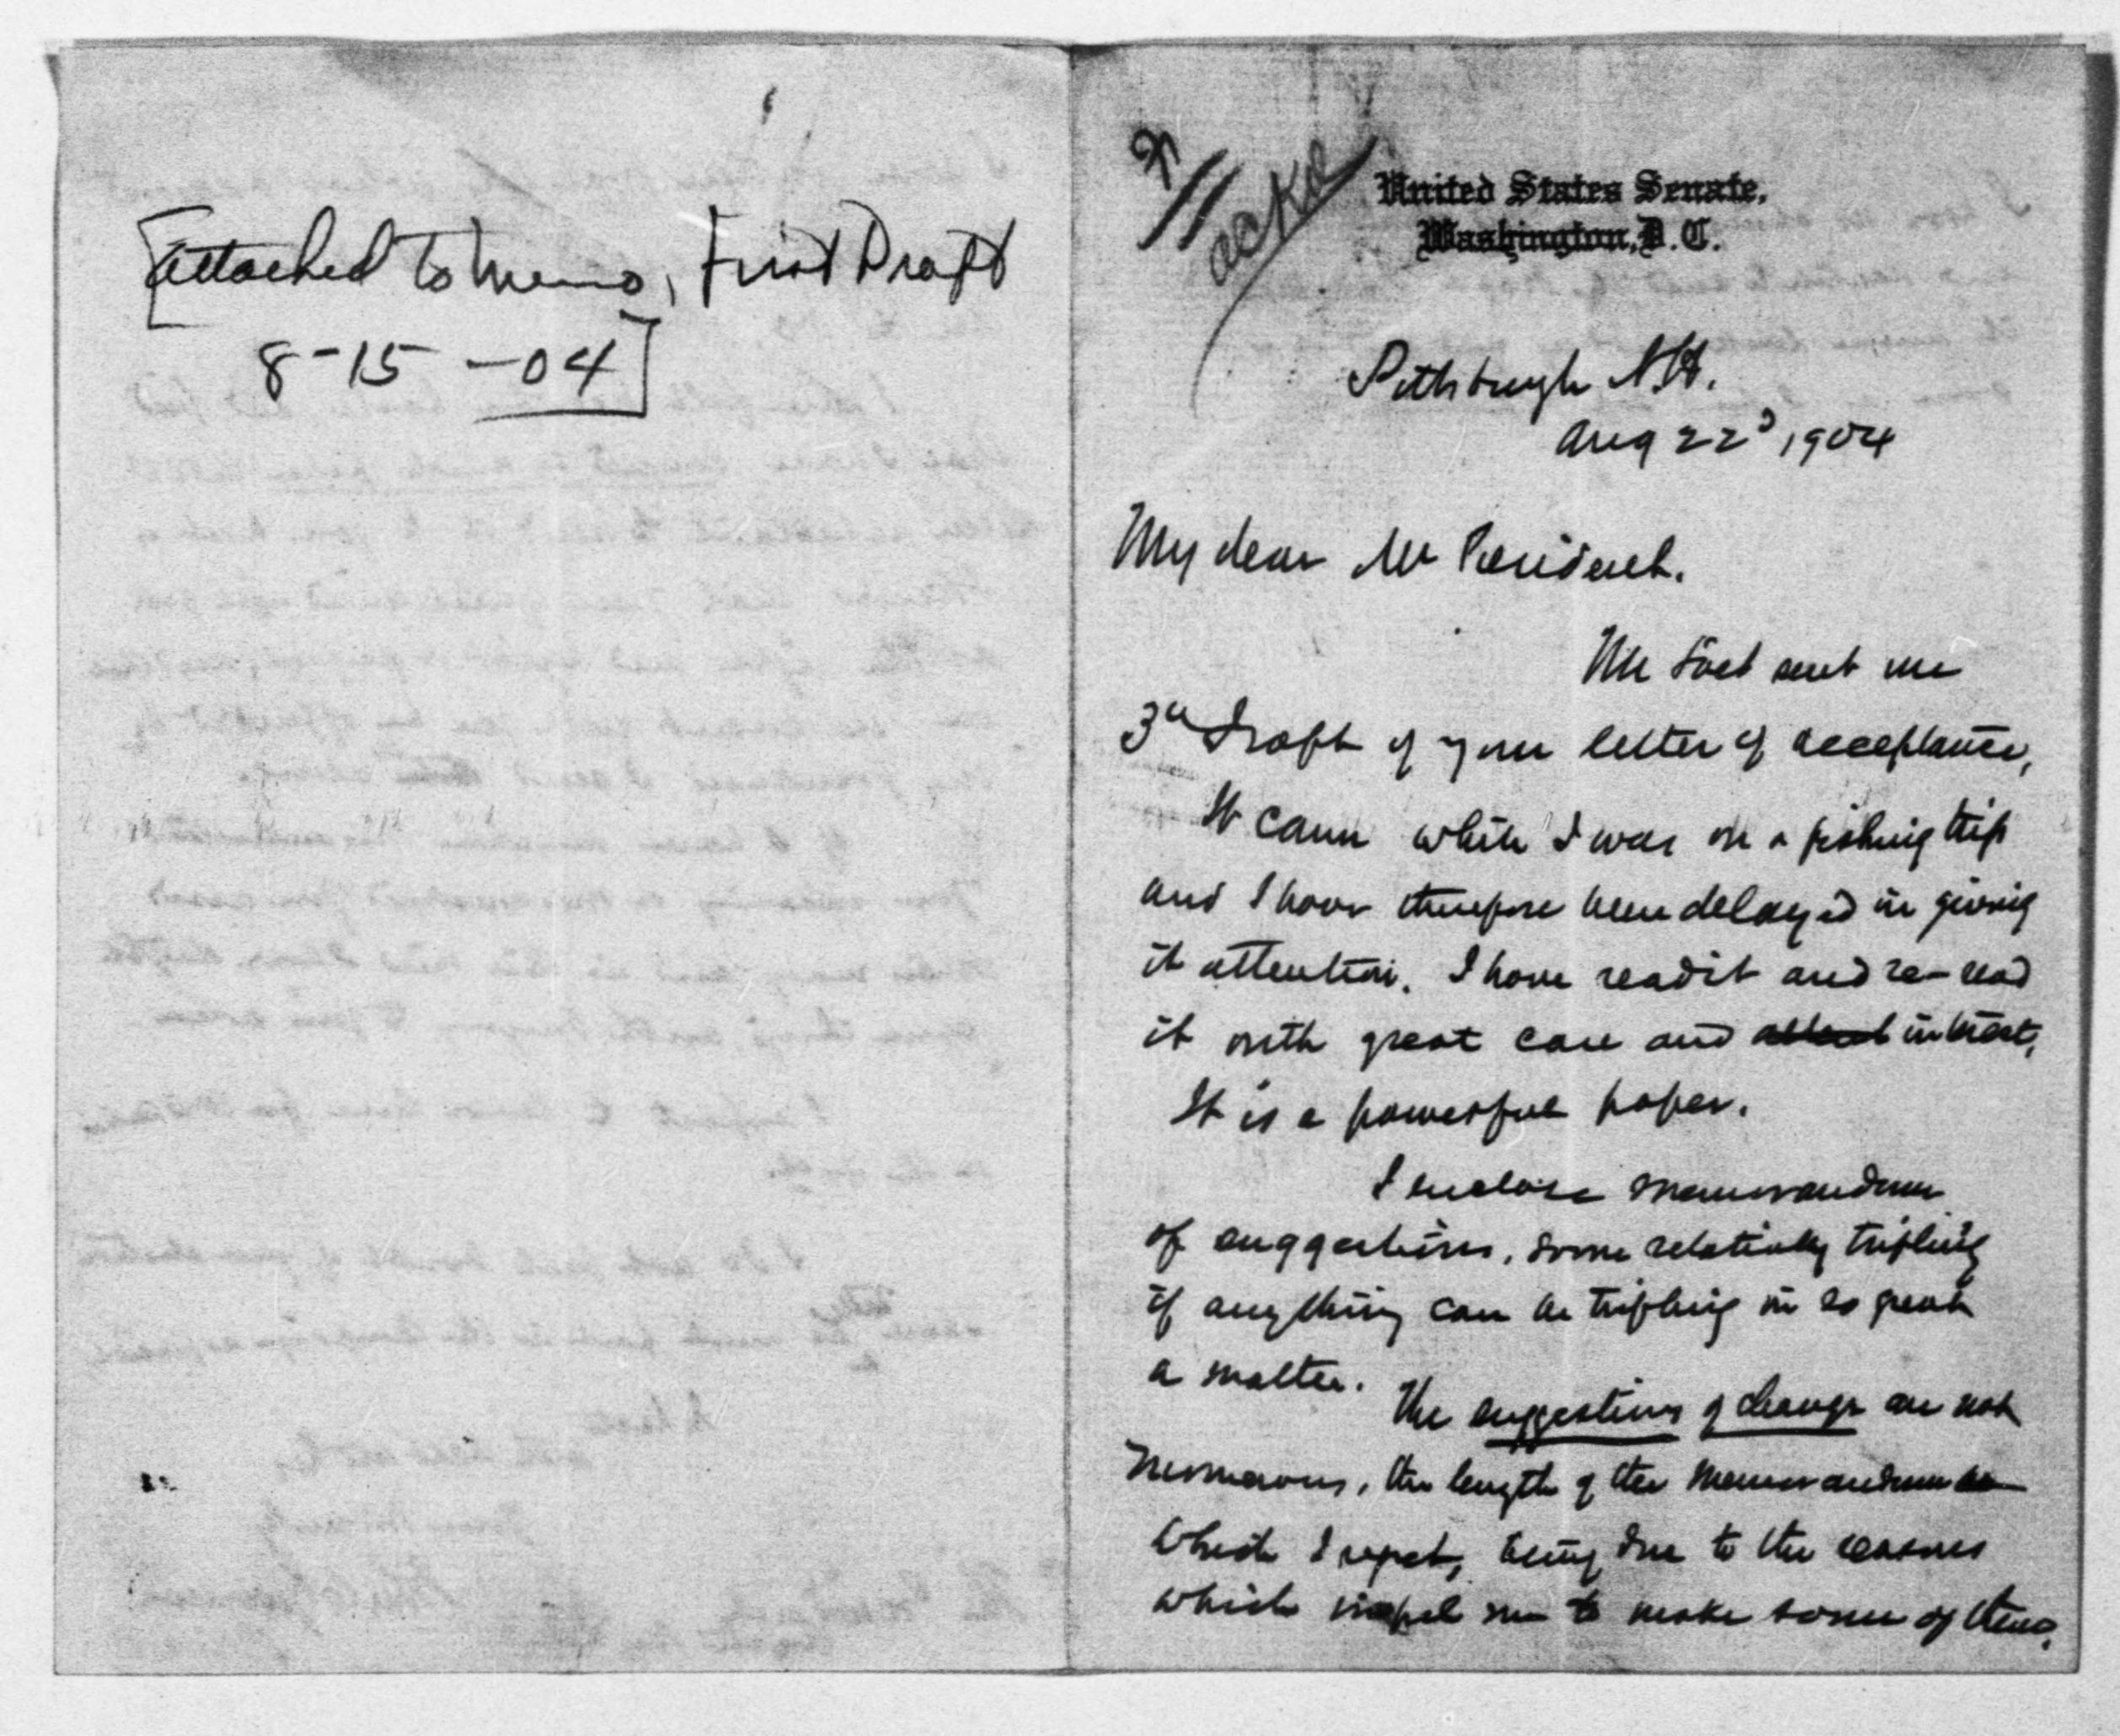 [Attached to Memo, First Draft
8-15-04]
ackd
United States Senate,
Washington, D.C.
Pittsburgh N.H.
Aug 22d, 1904
My dear Mr President.
Mr Loeb sent me
3d Draft of your letter of acceptance,
It came while I was on a fishing trip
and I have therefore been delayed in giving
it attention. I have read it and re-read
it with great care and interest,
It is a powerful paper.
I enclose memorandum
of suggestions, some relatively trifling
if anything can be trifling in so great
a matter.
The suggestions of change are not
numerous, the length of the memorandum
which I regret, being due to the reasons
which impel me to make some of them.